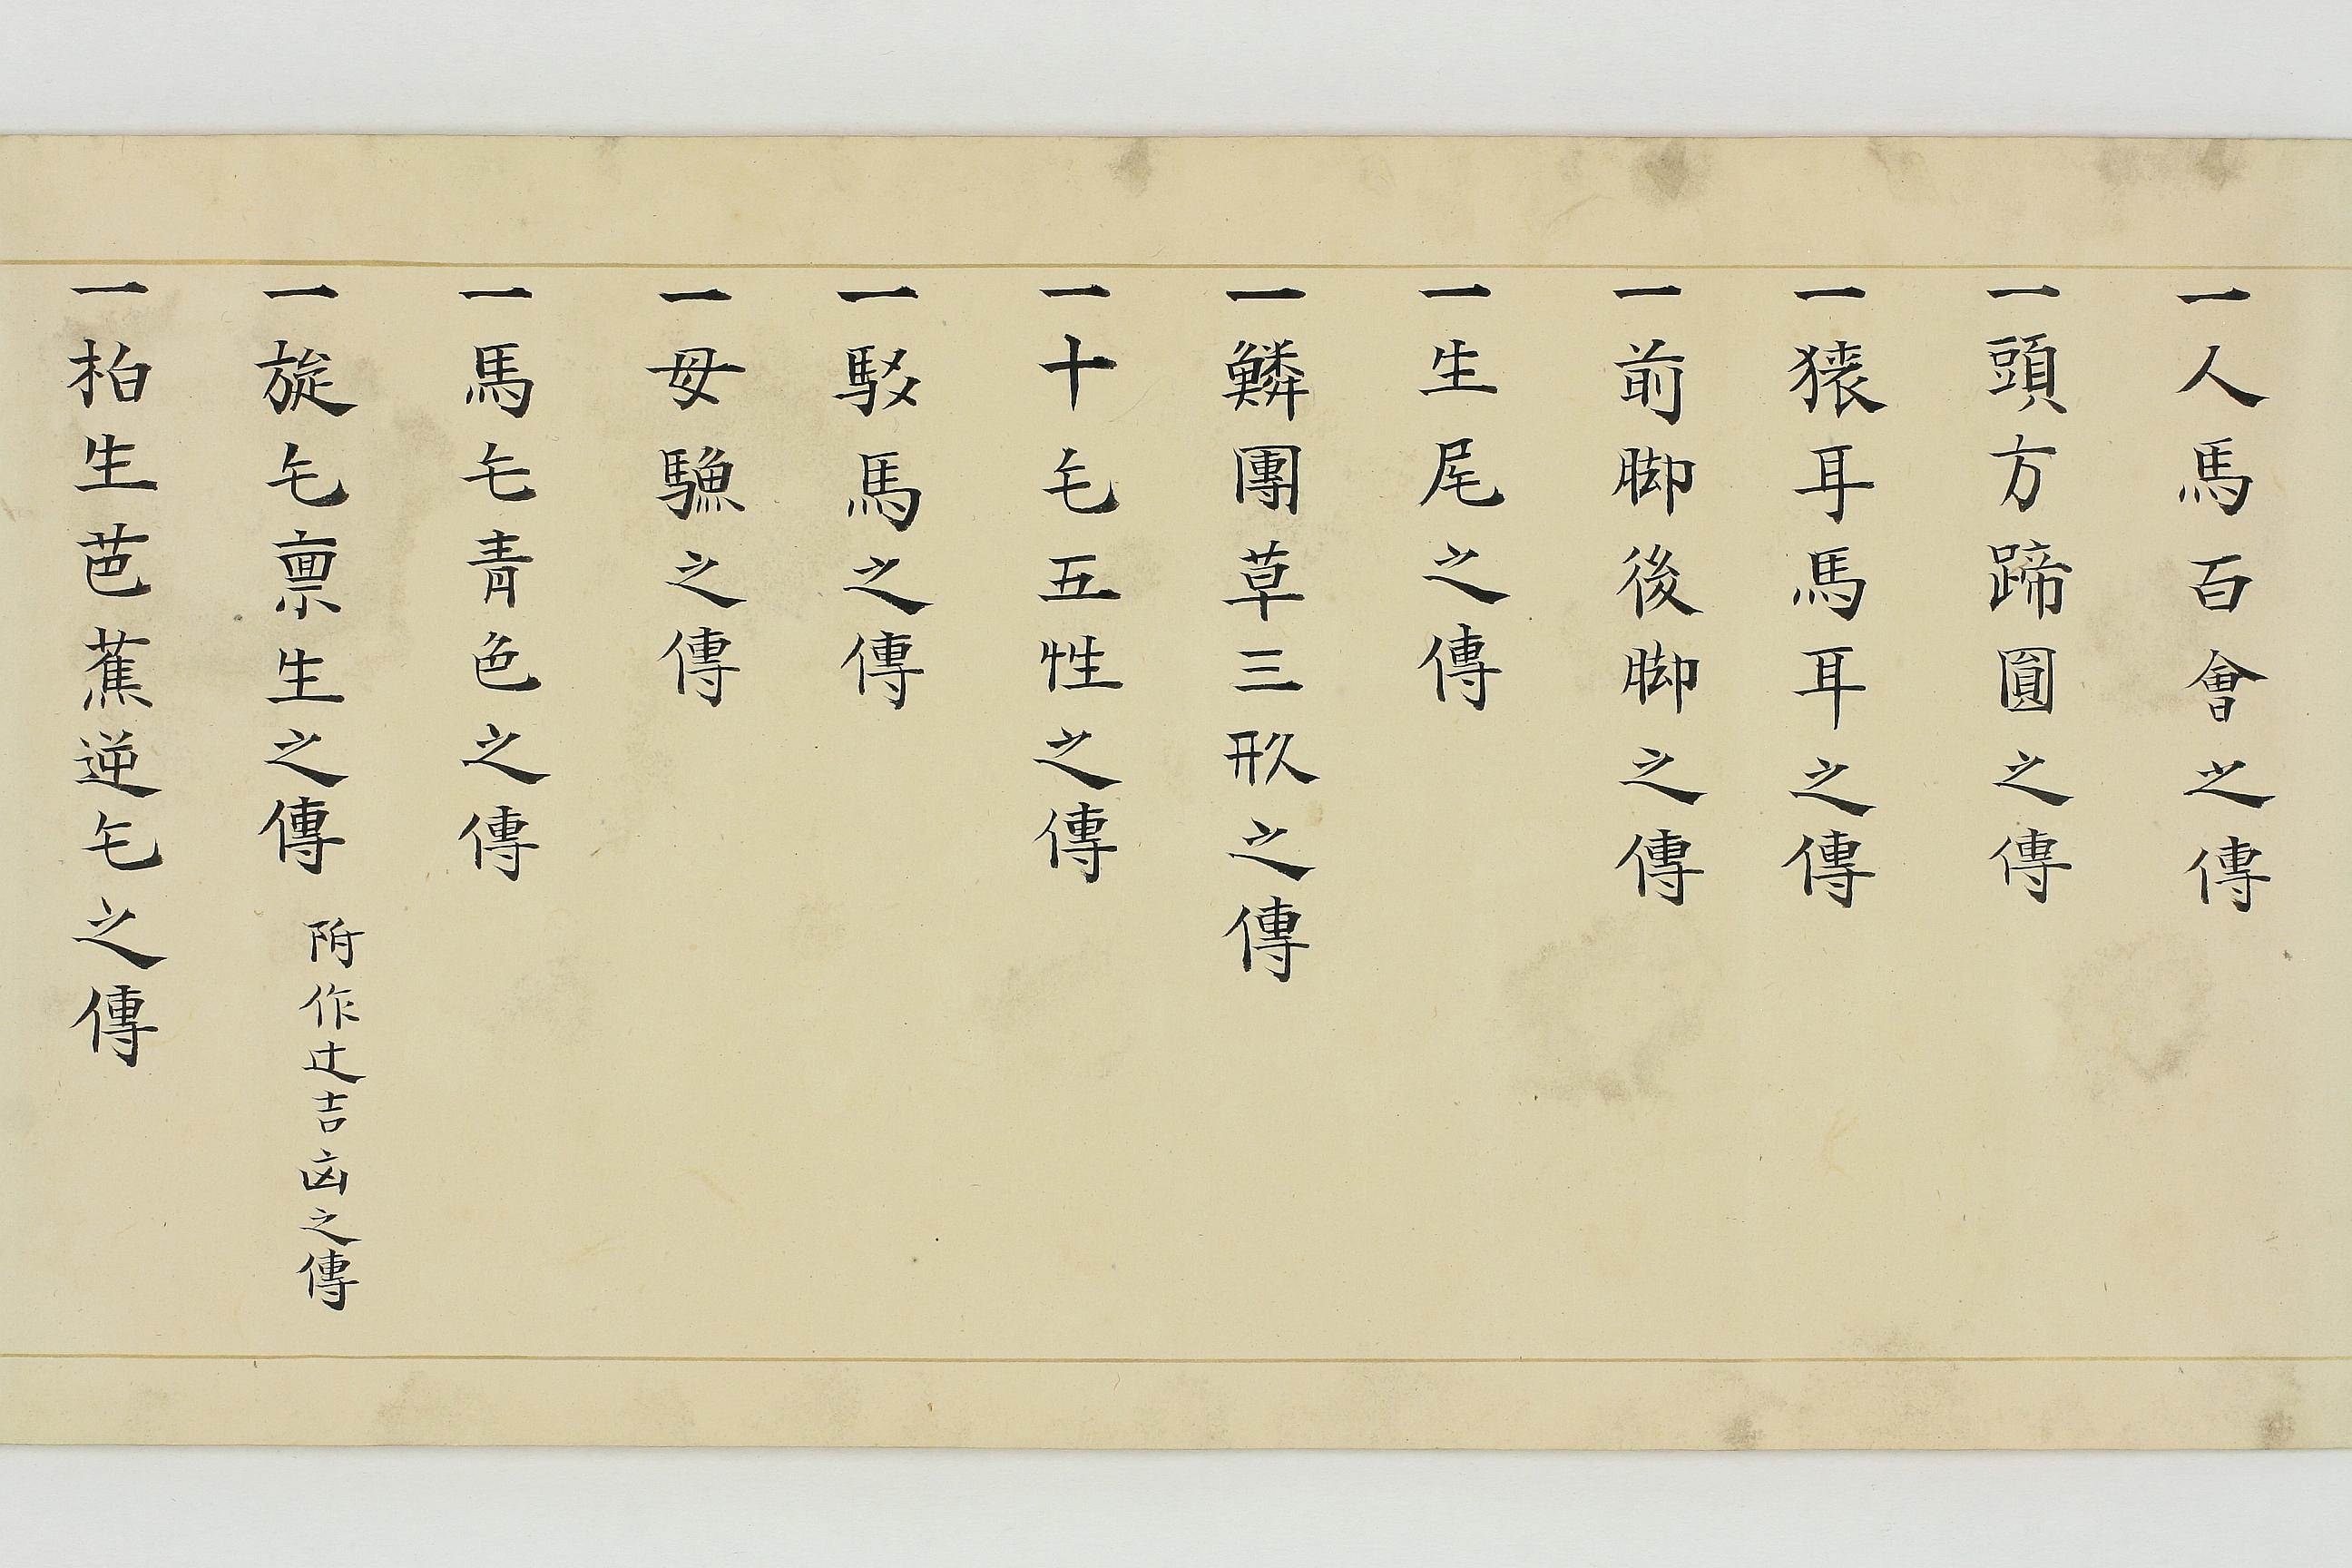 一人馬百會之傳
一頭方蹄圓之傳
一猿耳馬耳之傳
一前脚後脚之傳
一生尾之傳
一鱗團草三形之傳
一十毛五性之傳
一駁馬之傳
一母驗之傳
一馬毛青色之傳
一旋毛禀生之傳 附作辻吉凶之傳
一柏生芭蕉逆毛之傳